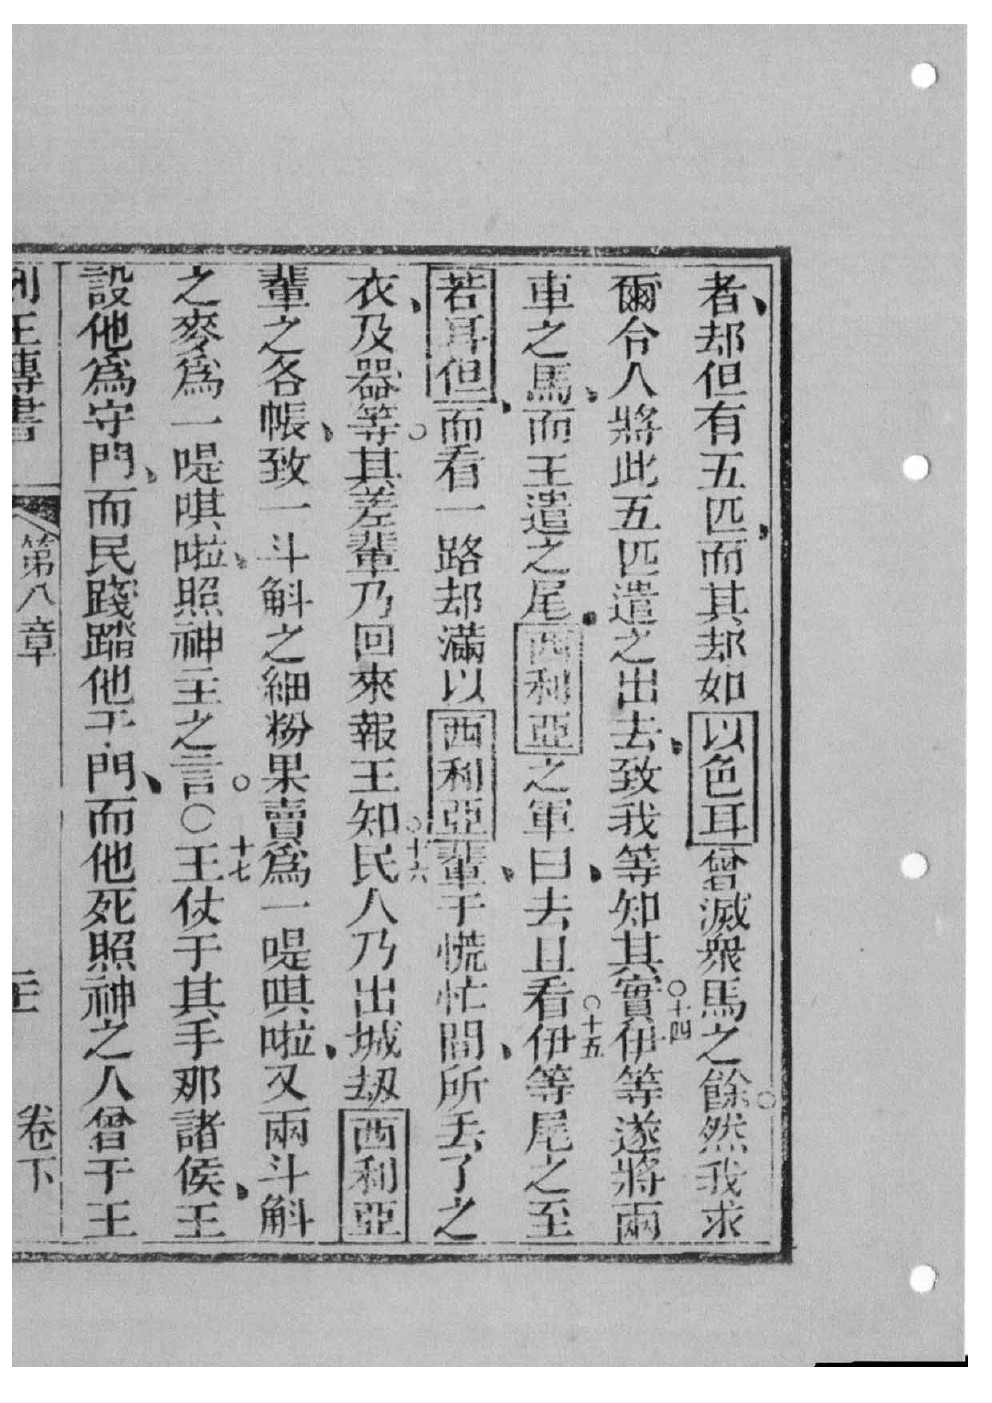 者、却但有五匹、而其却如以色耳曾滅衆馬之餘。然我求
爾令人將此五匹遣之出去、致我等知其實。十四伊等遂將兩
車之馬、而王遣之尾西利亞之軍曰、去且看。十五伊等尾之至
若耳但、而看一路却滿以西利亞輩、于慌忙間、所丢了之
衣、及器等。其差輩乃回來報王知。十六民人乃出城刼西利亞
輩之各帳、致一斗斛之細粉果賣爲一㖷唭啦、又兩斗斛
之麥爲一㖷唭啦、照神主之言。○十七王仗于其手那諸侯、王
設他爲守門、而民踐踏他于門、而他死照神之人曾于王
列王傳書 第八章 卷下